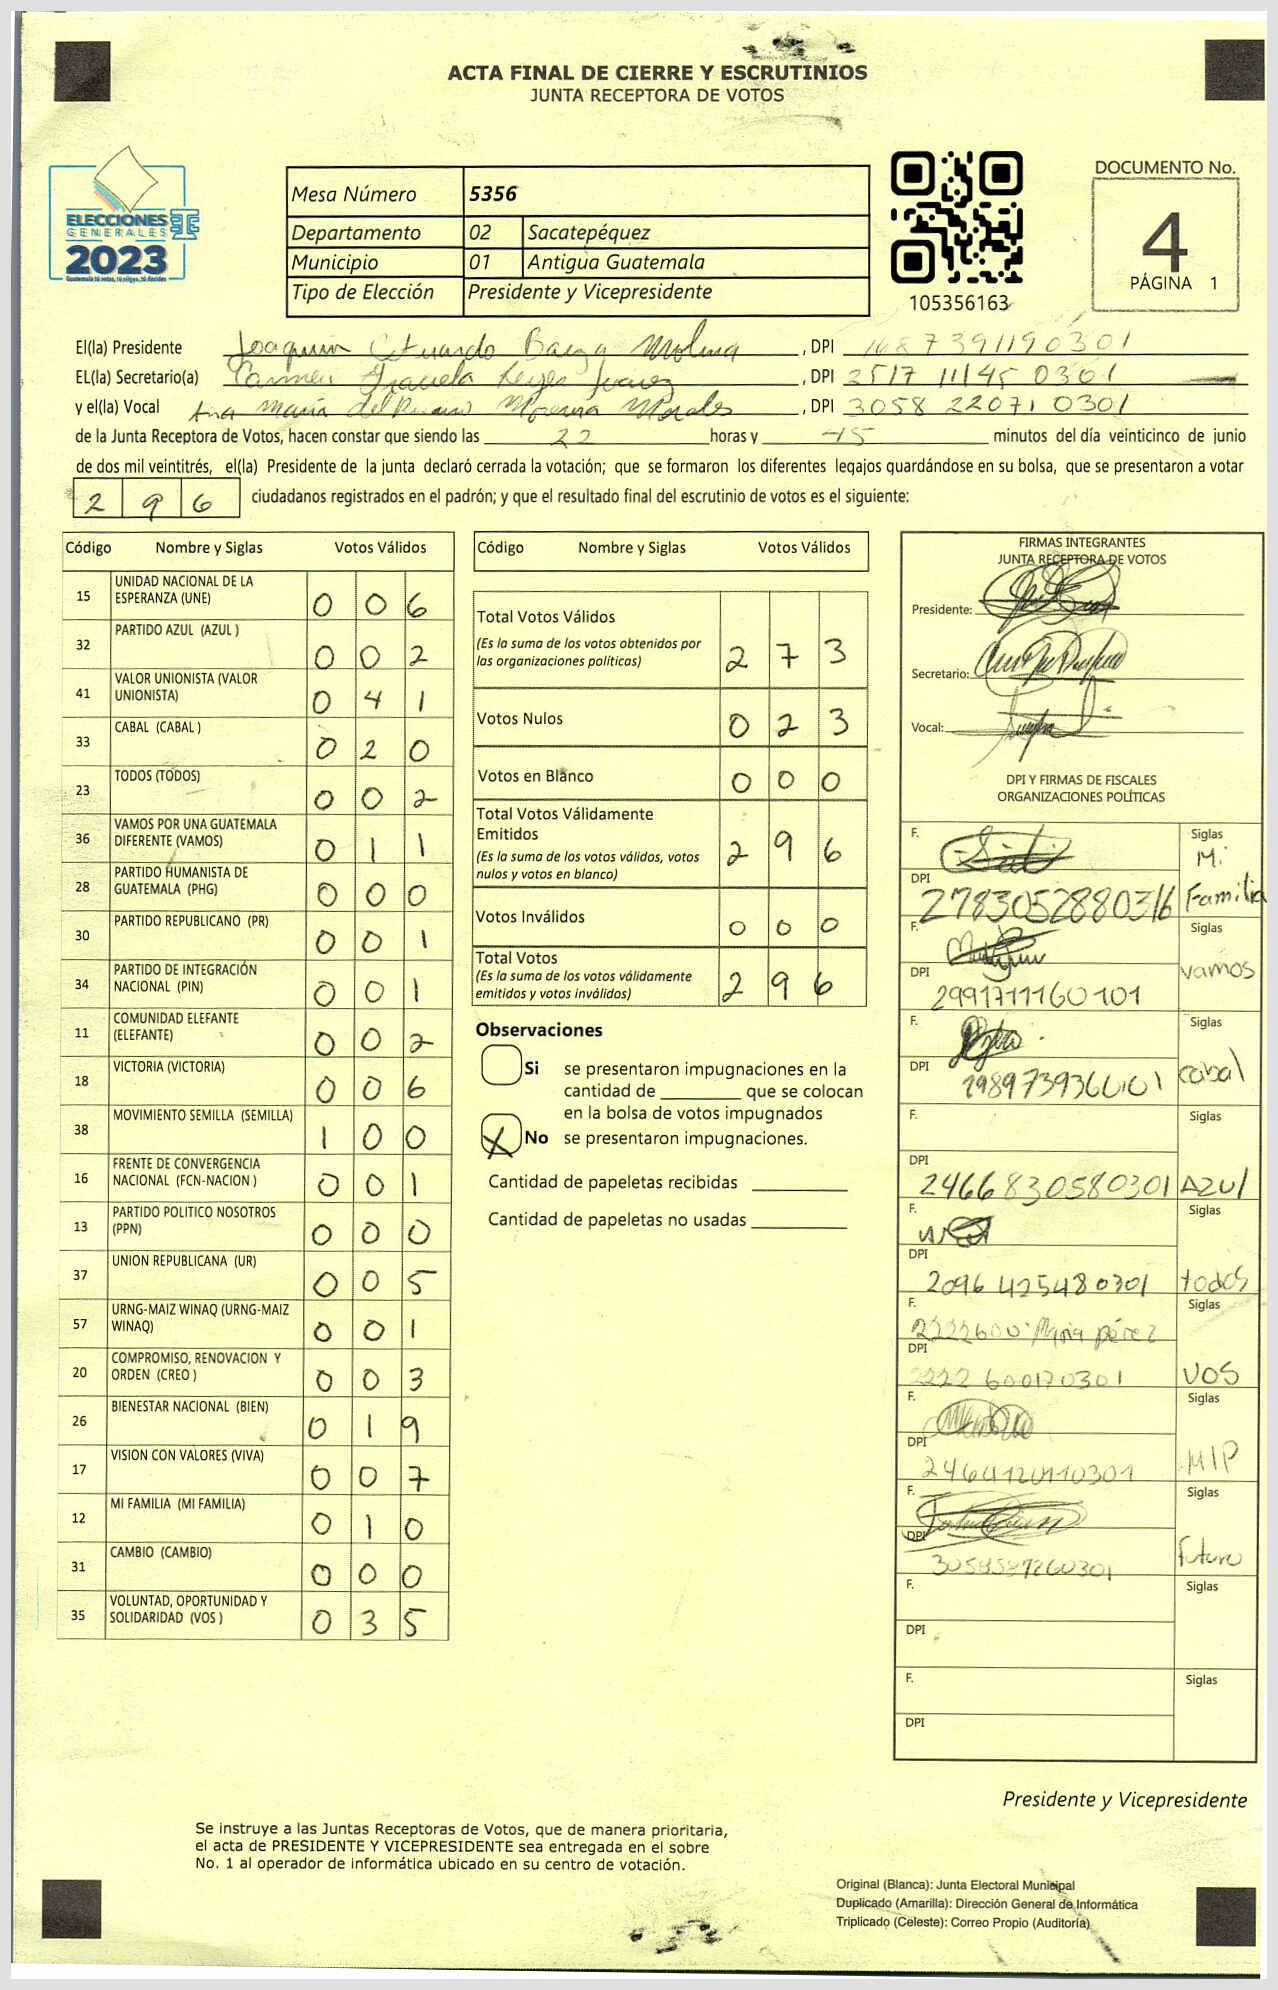 ACTA FINAL DE CIERRE Y ESCRUTINIOS
JUNTA RECEPTORA DE VOTOS
ELECCIONES
GENERALES
2023
Mesa Número 5356
Departamento 02 Sacatepéquez
Municipio 01 Antigua Guatemala
Tipo de Elección Presidente y Vicepresidente
105356163
DOCUMENTO No.
4
PÁGINA 1
El(la) Presidente Joaquin Eduardo Molina , DPI 1687391190301
EL(la) Secretario(a) Carmen Graciela Reyes Juarez , DPI 2517 11145 0301
y el(la) Vocal Ana María del Morales , DPI 3058 22071 0301
de la Junta Receptora de Votos, hacen constar que siendo las 22 horas y 45 minutos del día veinticinco de junio
de dos mil veintitrés, el(la) Presidente de la junta declaró cerrada la votación; que se formaron los diferentes legajos guardándose en su bolsa, que se presentaron a votar
2 9 6 ciudadanos registrados en el padrón; y que el resultado final del escrutinio de votos es el siguiente:
Código Nombre y Siglas Votos Válidos
15 UNIDAD NACIONAL DE LA ESPERANZA (UNE) 0 0 6
32 PARTIDO AZUL (AZUL ) 0 0 2
41 VALOR UNIONISTA (VALOR UNIONISTA) 0 4 1
33 CABAL (CABAL ) 0 2 0
23 TODOS (TODOS) 0 0 2
36 VAMOS POR UNA GUATEMALA DIFERENTE (VAMOS) 0 1 1
28 PARTIDO HUMANISTA DE GUATEMALA (PHG) 0 0 0
30 PARTIDO REPUBLICANO (PR) 0 0 1
34 PARTIDO DE INTEGRACIÓN NACIONAL (PIN) 0 0 1
11 COMUNIDAD ELEFANTE (ELEFANTE) 0 0 2
18 VICTORIA (VICTORIA) 0 0 6
38 MOVIMIENTO SEMILLA (SEMILLA) 1 0 0
16 FRENTE DE CONVERGENCIA NACIONAL (FCN-NACION ) 0 0 1
13 PARTIDO POLITICO NOSOTROS (PPN) 0 0 0
37 UNION REPUBLICANA (UR) 0 0 5
57 URNG-MAIZ WINAQ (URNG-MAIZ WINAQ) 0 0 1
20 COMPROMISO, RENOVACION Y ORDEN (CREO ) 0 0 3
26 BIENESTAR NACIONAL (BIEN) 0 1 9
17 VISION CON VALORES (VIVA) 0 0 7
12 MI FAMILIA (MI FAMILIA) 0 1 0
31 CAMBIO (CAMBIO) 0 0 0
35 VOLUNTAD, OPORTUNIDAD Y SOLIDARIDAD (VOS ) 0 3 5
Código Nombre y Siglas Votos Válidos
Total Votos Válidos
(Es la suma de los votos obtenidos por
las organizaciones políticas) 2 7 3
Votos Nulos 0 2 3
Votos en Blanco 0 0 0
Total Votos Válidamente
Emitidos
(Es la suma de los votos válidos, votos
nulos y votos en blanco) 2 9 6
Votos Inválidos 0 0 0
Total Votos
(Es la suma de los votos válidamente
emitidos y votos inválidos) 2 9 6
Observaciones
Si se presentaron impugnaciones en la
cantidad de ________ que se colocan
en la bolsa de votos impugnados
X No se presentaron impugnaciones.
Cantidad de papeletas recibidas
Cantidad de papeletas no usadas
FIRMAS INTEGRANTES
JUNTA RECEPTORA DE VOTOS
Presidente:
Secretario:
Vocal:
DPI Y FIRMAS DE FISCALES
ORGANIZACIONES POLÍTICAS
F. Siglas Mi
DPI 2783052880316 Familia
F. Siglas
DPI 2991711160101 vamos
F. Siglas
DPI cabal
F. Siglas
DPI 2466830580301 Azul
F. Siglas
DPI 2096 425480301 todos
F. 2222600 Maria pérez Siglas
DPI 2222 600170301 VOS
F. Siglas
DPI MIP
F. Siglas
DPI futuro
F. Siglas
DPI
F. Siglas
DPI
Presidente y Vicepresidente
Se instruye a las Juntas Receptoras de Votos, que de manera prioritaria,
el acta de PRESIDENTE Y VICEPRESIDENTE sea entregada en el sobre
No. 1 al operador de informática ubicado en su centro de votación.
Original (Blanca): Junta Electoral Municipal
Duplicado (Amarilla): Dirección General de Informática
Triplicado (Celeste): Correo Propio (Auditoría)